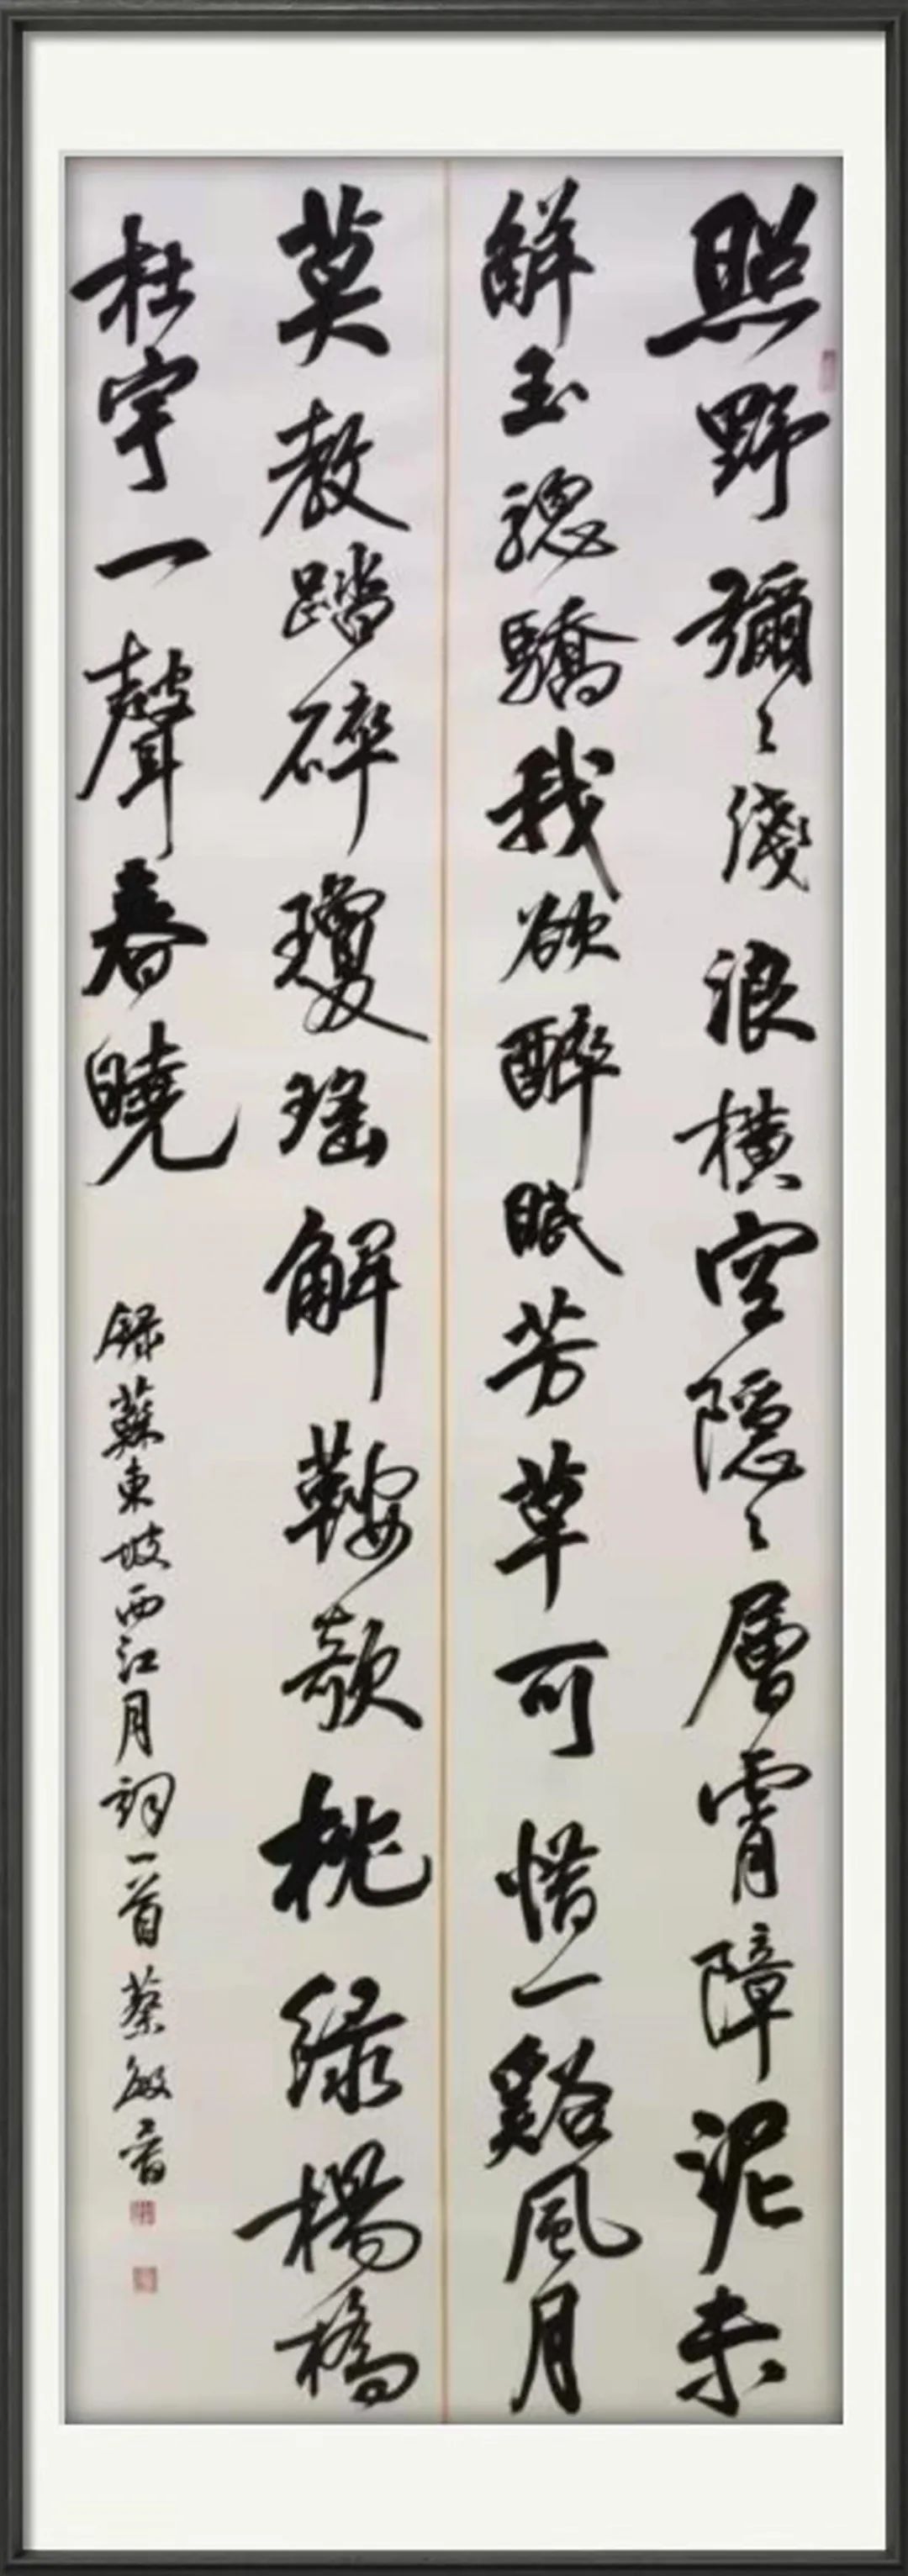 照野彌々淺浪橫空隱々層霄障泥未
解玉驄驕我欲醉眠芳草可惜一谿風月
莫教踏碎瓊瑤解鞍欹枕綠楊橋
杜宇一聲春曉
錄蘇東坡西江月詞一首 蔡敏書